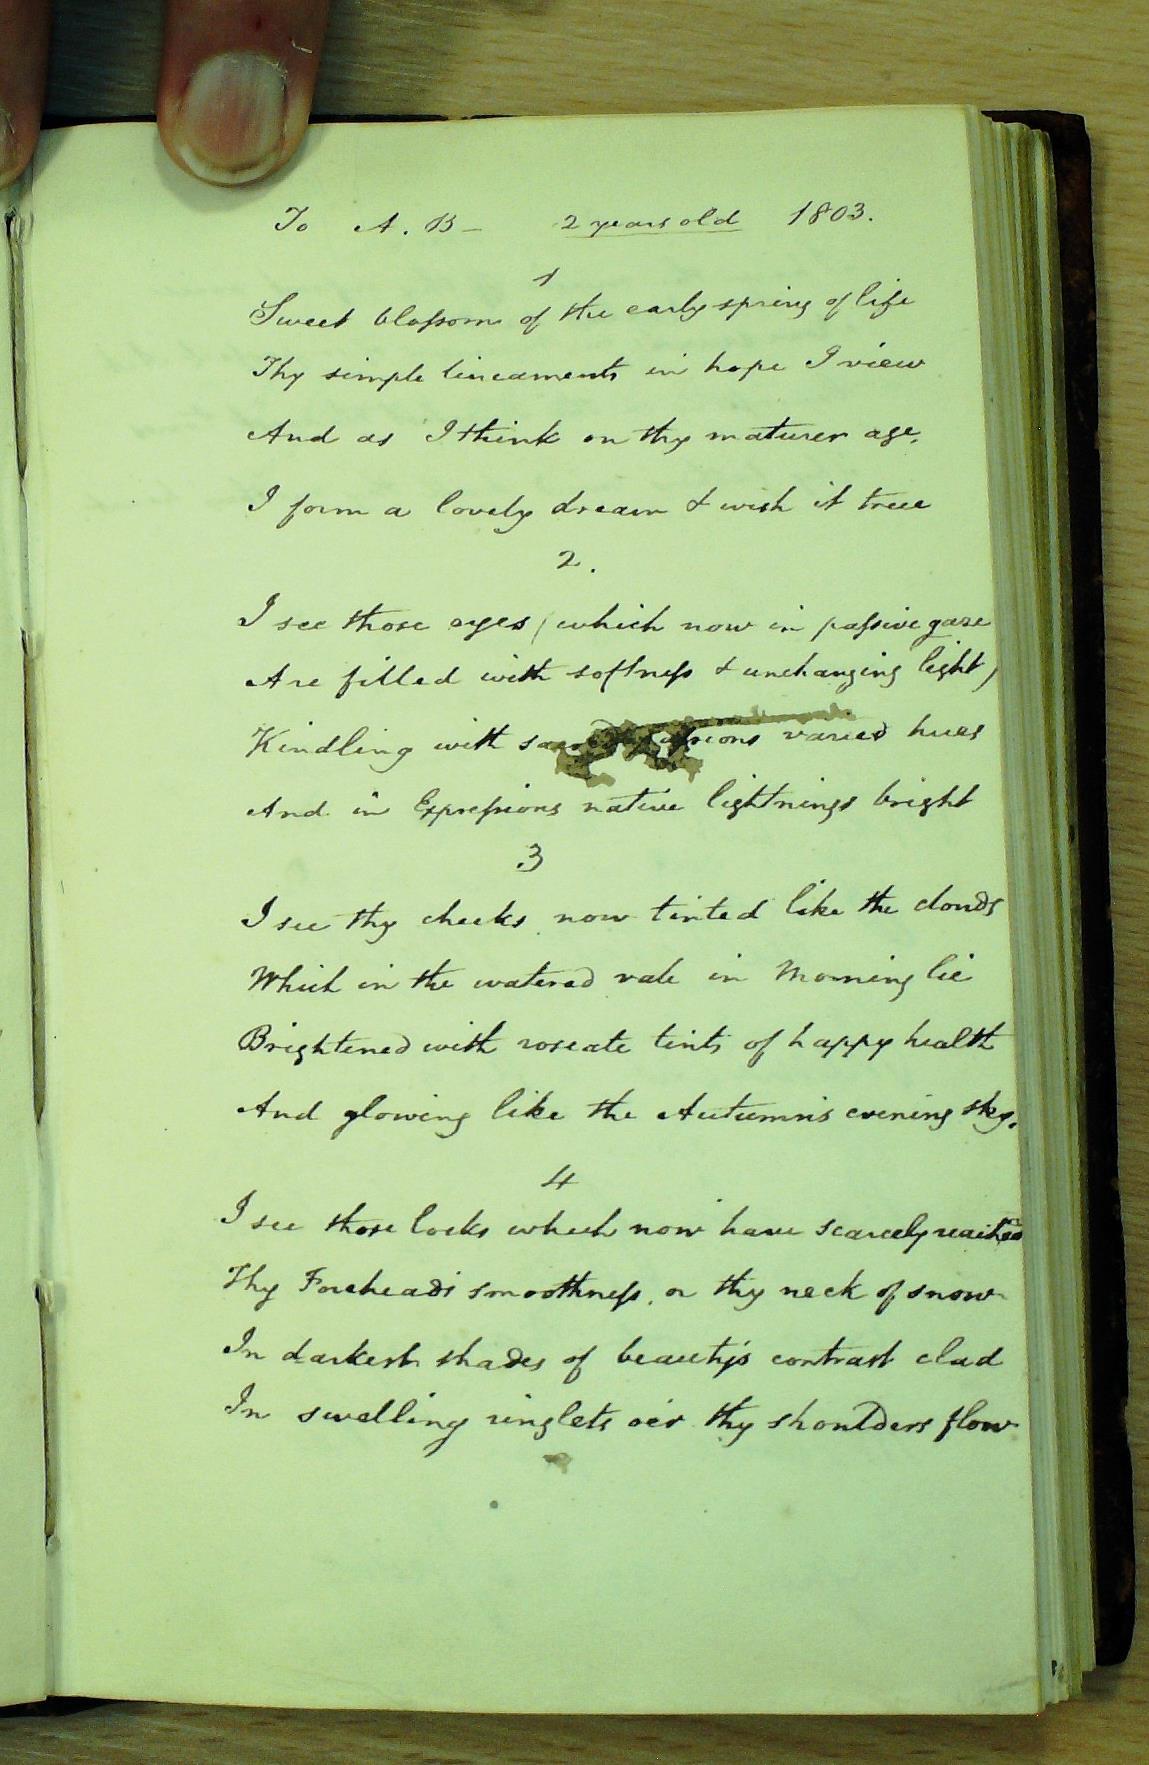 To A. B— 2 years old 1803.
1
Sweet blossom of the early spring of life
Thy simple lineaments in hope I view
And as I think on thy maturer age,
I form a lovely dream & wish it true
2.
I see those eyes, (which now in passive gaze
Are filled with softness & unchanging light,)
Kindling with varied hues
And in Expressions native lightnings bright
3
I see thy cheeks now tinted like the clouds
Which in the watered vale in Morning lie
Brightened with roseate tints of happy health
And glowing like the Autumn's evening sky.
4
I see those locks which now have scarcely reached
Thy Forehead's smoothness, or thy neck of snow
In darkest shades of beauty's contrast clad
In swelling ringlets o'er thy shoulders flow